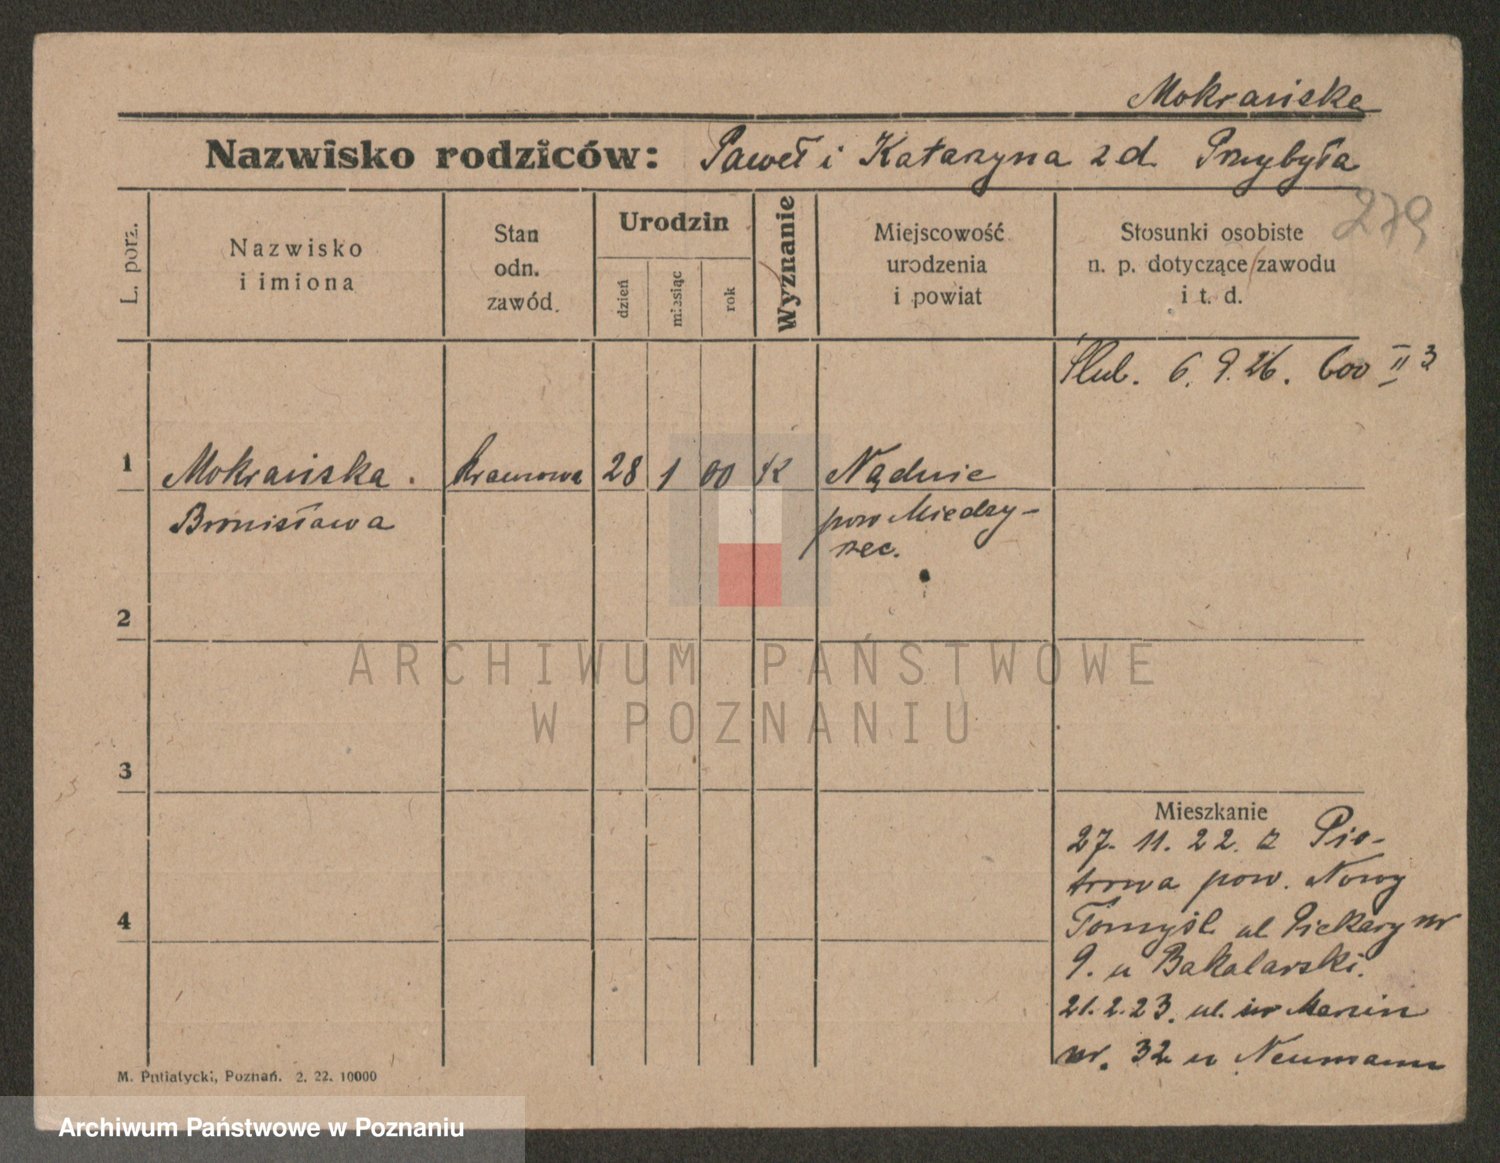 Mokrańska
Nazwisko rodziców: Paweł i Katarzyna z d. Przybyła
279
L. porz.
Nazwisko
i imiona
Stan
odn.
zawód.
Urodzin
dzień
miesiąc
rok
Wyznanie
Miejscowość
urodzenia
i powiat
Stosunki osobiste
n. p. dotyczące zawodu
i t. d.
Ślub. 6. 9. 26. 600 II 3
1 Mokrańska. krawcowa 28 1 00 K Nądnie
Bronisława pow Miedzy-
rzec.
2
3
4
Mieszkanie
27. 11. 22. z Pio-
trowa pow. Nowy
Tomyśl ul Piekary nr
9. u Bakalarski.
21. 2. 23. ul. św Marcin
nr. 32 u Neumann
M. Putiatycki, Poznań. 2. 22. 10000
ARCHIWUM PAŃSTWOWE
W POZNANIU
Archiwum Państwowe w Poznaniu